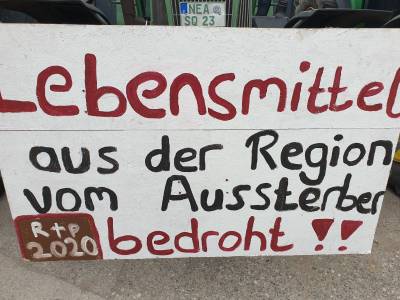 NEA
SQ 23
Lebensmittel
aus der Region
vom Aussterben
R+P
2020
bedroht !!